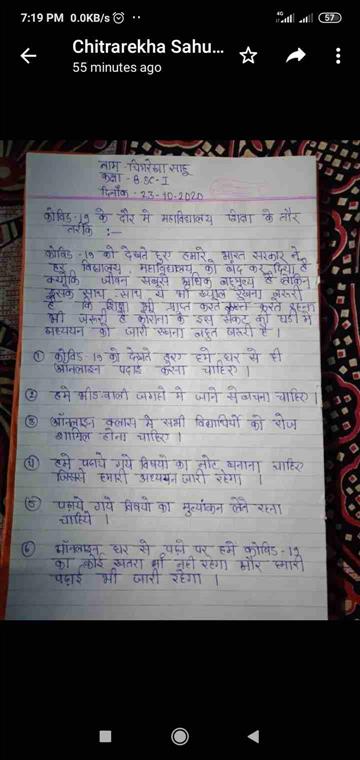 7:19 PM 0.0KB/s
4G
57
Chitrarekha Sahu...
55 minutes ago
नाम - चित्ररेखा साहू
कक्षा - B SC - I
दिनाँक - 23-10-2020
कोविड-19 के दौर में महाविद्यालय शिक्षा के तौर
तरीके :-
कोविड-19 को देखते हुए हमारे भारत सरकार ने
हर विद्यालय, महाविद्यालय को बंद कर दिया है
क्योंकि जीवन सबसे अधिक बहुमूल्य है लेकिन
इसके साथ-साथ ये भी ख्याल रखना जरूरी
है कि शिक्षा को प्राप्त करते रहना
भी जरूरी है कोरोना के इस संकट की घड़ी में
अध्ययन को जारी रखना बहुत जरूरी है ।
① कोविड-19 को देखते हुए हमे घर से ही
ऑनलाइन पढाई करना चाहिए ।
② हमे भीड़वाली जगहों में जाने से बचना चाहिए ।
③ ऑनलाइन क्लास में सभी विद्यार्थियों को रोज
शामिल होना चाहिए ।
④ हमे पढ़ाये गये विषयो का नोट बनाना चाहिए
जिससे हमारी अध्ययन जारी रहेगा ।
⑤ पढ़ाये गये विषयो का मुल्यांकन लेते रहना
चाहिये ।
⑥ ऑनलाइन घर से पढ़ने पर हमे कोविड-19
का कोई खतरा भी नही रहेगा और हमारी
पढाई भी जारी रहेगा ।